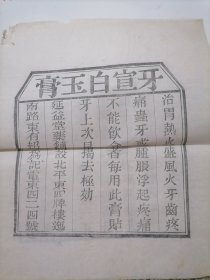 牙宣白玉膏
治胃熱火盛風火牙齒疼
痛蟲牙牙齦腫浮起疼痛
不能飲食每用此膏貼
牙上次日揭去極効
延益堂藥舖設北平東四牌樓迤
南路東有蝠為記電東四二四號